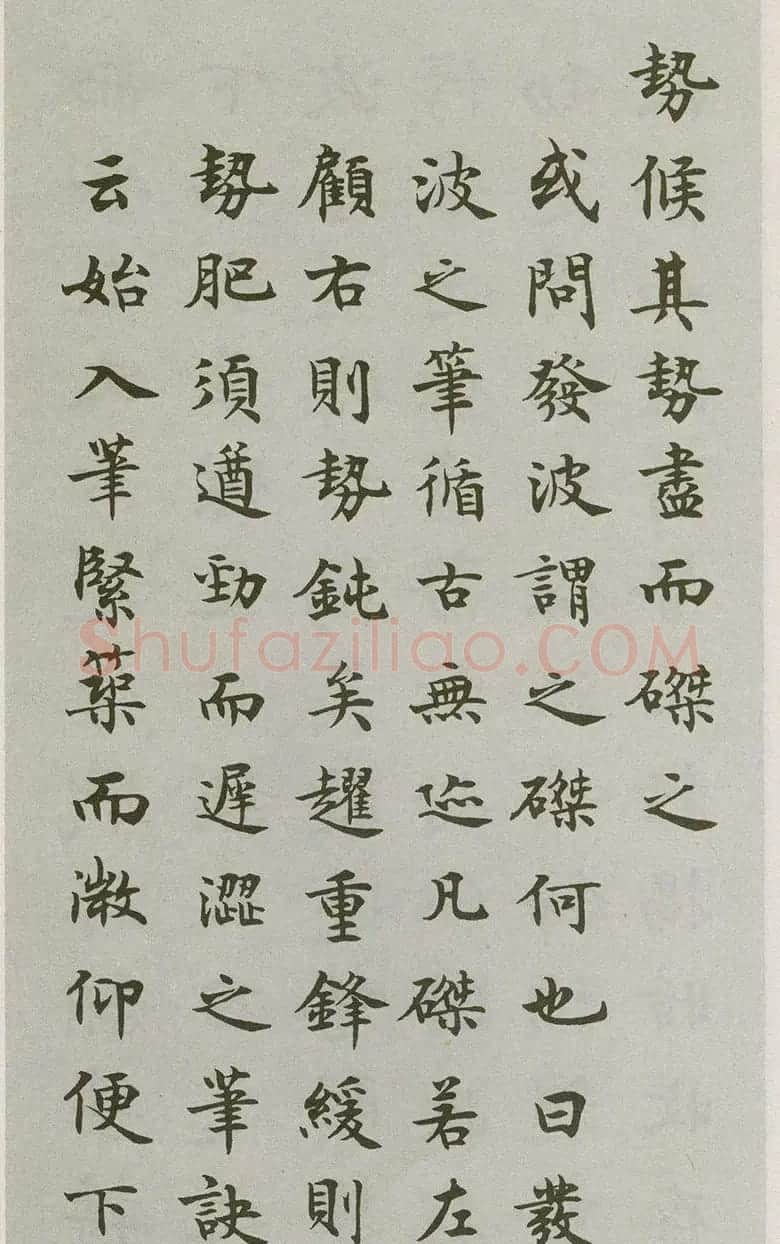 勢候其勢盡而磔之
或問發波謂之磔何也曰發
波之筆循古無迹凡磔若左
顧右則勢鈍矣趯重鋒緩則
勢肥須遒勁而遲澀之筆訣
云始入筆緊築而微仰便下
Shufaziliao.COM